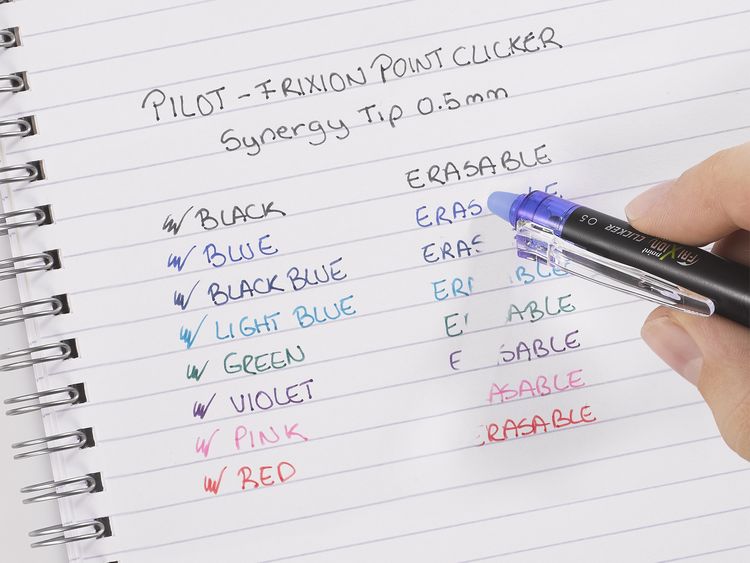 PILOT - FRIXION POINT CLICKER
Synergy Tip 0.5mm
BLACK
BLUE
BLACK BLUE
LIGHT BLUE
GREEN
VIOLET
PINK
RED
ERASABLE
ERAS
ERAS
ER BLE
E ABLE
E SABLE
ASABLE
RASABLE
point FRIXION CLICKER 0.5